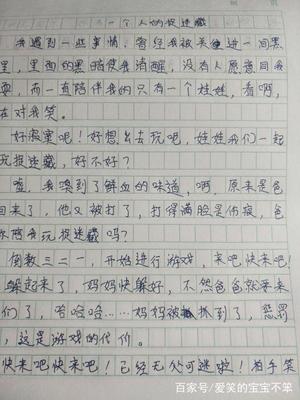 一个人的捉迷藏
我遇到一些事情,曾经我被关进一间黑
里,里面的黑暗使我清醒,没有人愿意同我
耍,而一直陪伴我的只有一个娃娃,看啊,
在对我笑。
好寂寞吧!好想出去玩吧,娃娃我们一起
玩捉迷藏,好不好?
嘘,我嗅到了鲜血的味道,啊,原来是爸
回来了,他又被打了,打得满脸是伤痕,爸
你陪我玩捉迷藏吗?
倒数三二一,开始进行游戏,来吧快来吧!
躲起来了,妈妈快躲好,不然爸爸就来
们了,哈哈哈……妈妈被抓到了,惩罚
,这是游戏的代价。
快来吧快来吧!已经无处可逃啦!拍手笑
百家号/爱笑的宝宝不笨